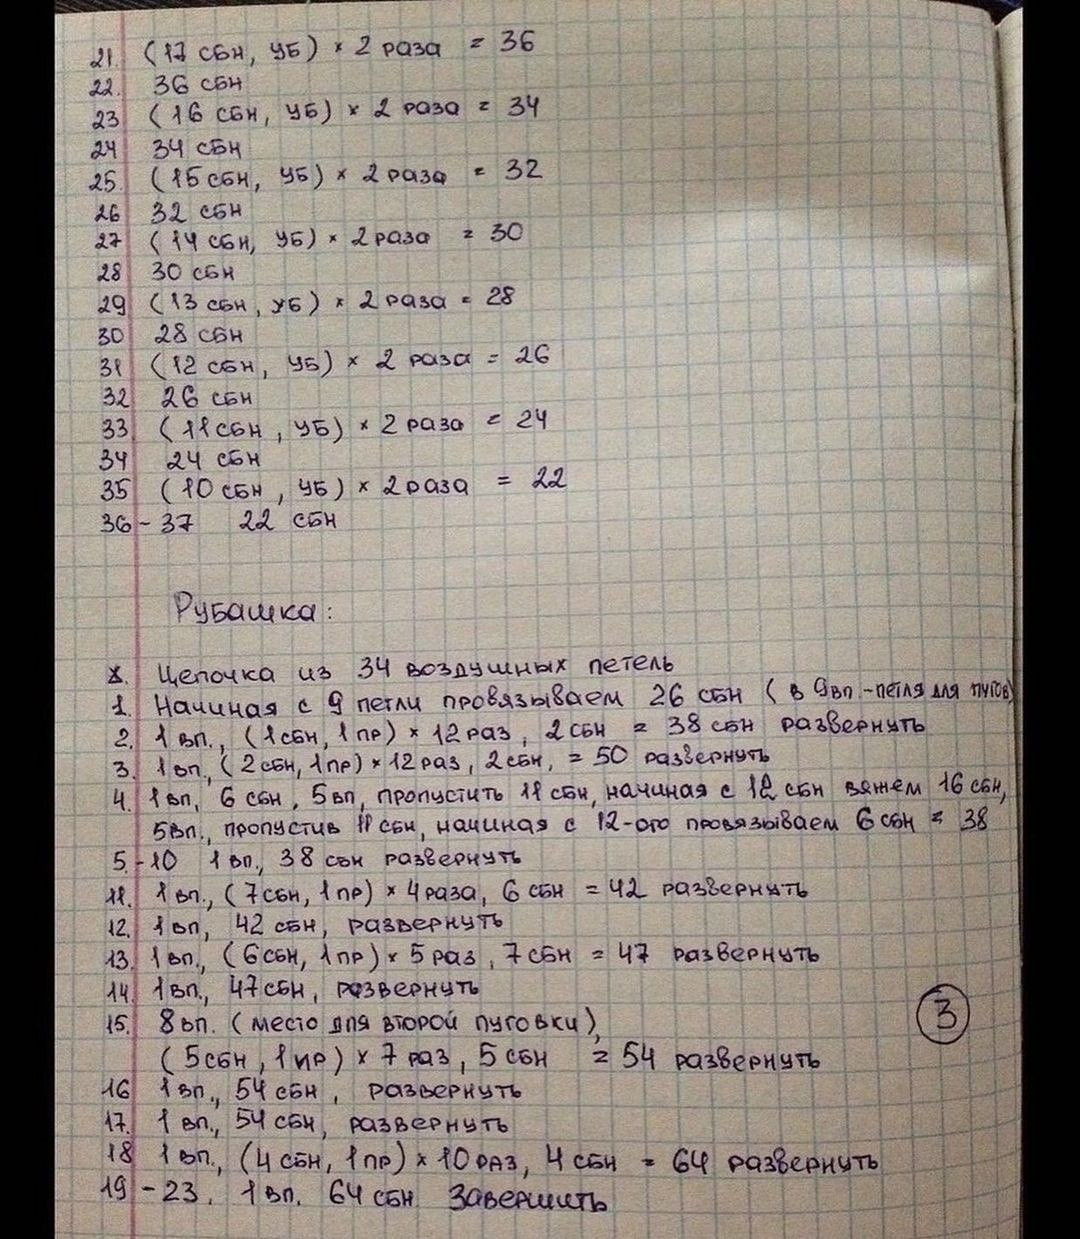 21. (17 сбн, уб) × 2 раза = 36
22. 36 сбн
23 (16 сбн, уб) × 2 раза = 34
24 34 сбн
25. (15 сбн, уб) × 2 раза = 32
26 32 сбн
27 (14 сбн, уб) × 2 раза = 30
28 30 сбн
29 (13 сбн, уб) × 2 раза = 28
30 28 сбн
31 (12 сбн, уб) × 2 раза = 26
32 26 сбн
33 (11 сбн, уб) × 2 раза = 24
34 24 сбн
35 (10 сбн, уб) × 2 раза = 22
36 - 37 22 сбн
Рубашка:
Цепочка из 34 воздушных петель
1. Начиная с 9 петли провязываем 26 сбн (в 9вп.-петля для пугов)
2. 1 вп., (1 сбн, 1 пр) × 12 раз, 2 сбн = 38 сбн развернуть
3. 1 вп., (2 сбн, 1 пр) × 12 раз, 2 сбн, = 50 развернуть
4. 1 вп, 6 сбн, 5 вп, пропустить 11 сбн, начиная с 12 сбн вяжем 16 сбн,
5вп., пропустив 11 сбн, начиная с 12-ого провязываем 6 сбн = 38
5. - 10 1 вп., 38 сбн развернуть
11. 1 вп., (7 сбн, 1 пр) × 4 раза, 6 сбн = 42 развернуть
12. 1 вп, 42 сбн, развернуть
13. 1 вп., (6 сбн, 1 пр) × 5 раз, 7 сбн = 47 развернуть
14. 1 вп., 47 сбн, развернуть
15. 8 вп. (место для второй пуговки),
(5 сбн, 1 пр) × 7 раз, 5 сбн = 54 развернуть
3
16 1 вп., 54 сбн, развернуть
17. 1 вп., 54 сбн, развернуть
18 1 вп., (4 сбн, 1 пр) × 10 раз, 4 сбн = 64 развернуть
19 - 23. 1 вп. 64 сбн завершить